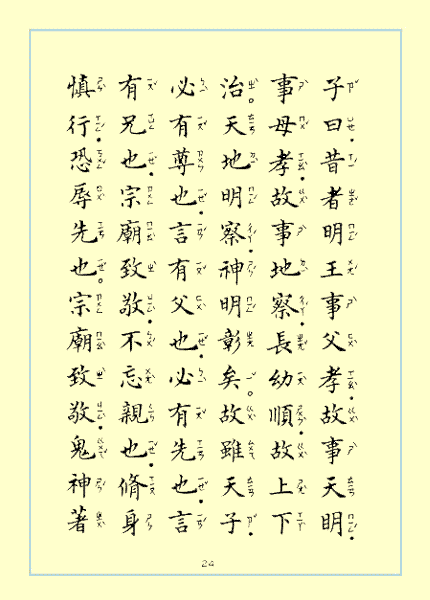 子曰昔者明王事父孝故事天明
事母孝故事地察長幼順故上下
治天地明察神明彰矣故雖天子
必有尊也言有父也必有先也言
有兄也宗廟致敬不忘親也脩身
慎行恐辱先也宗廟致敬鬼神著
24